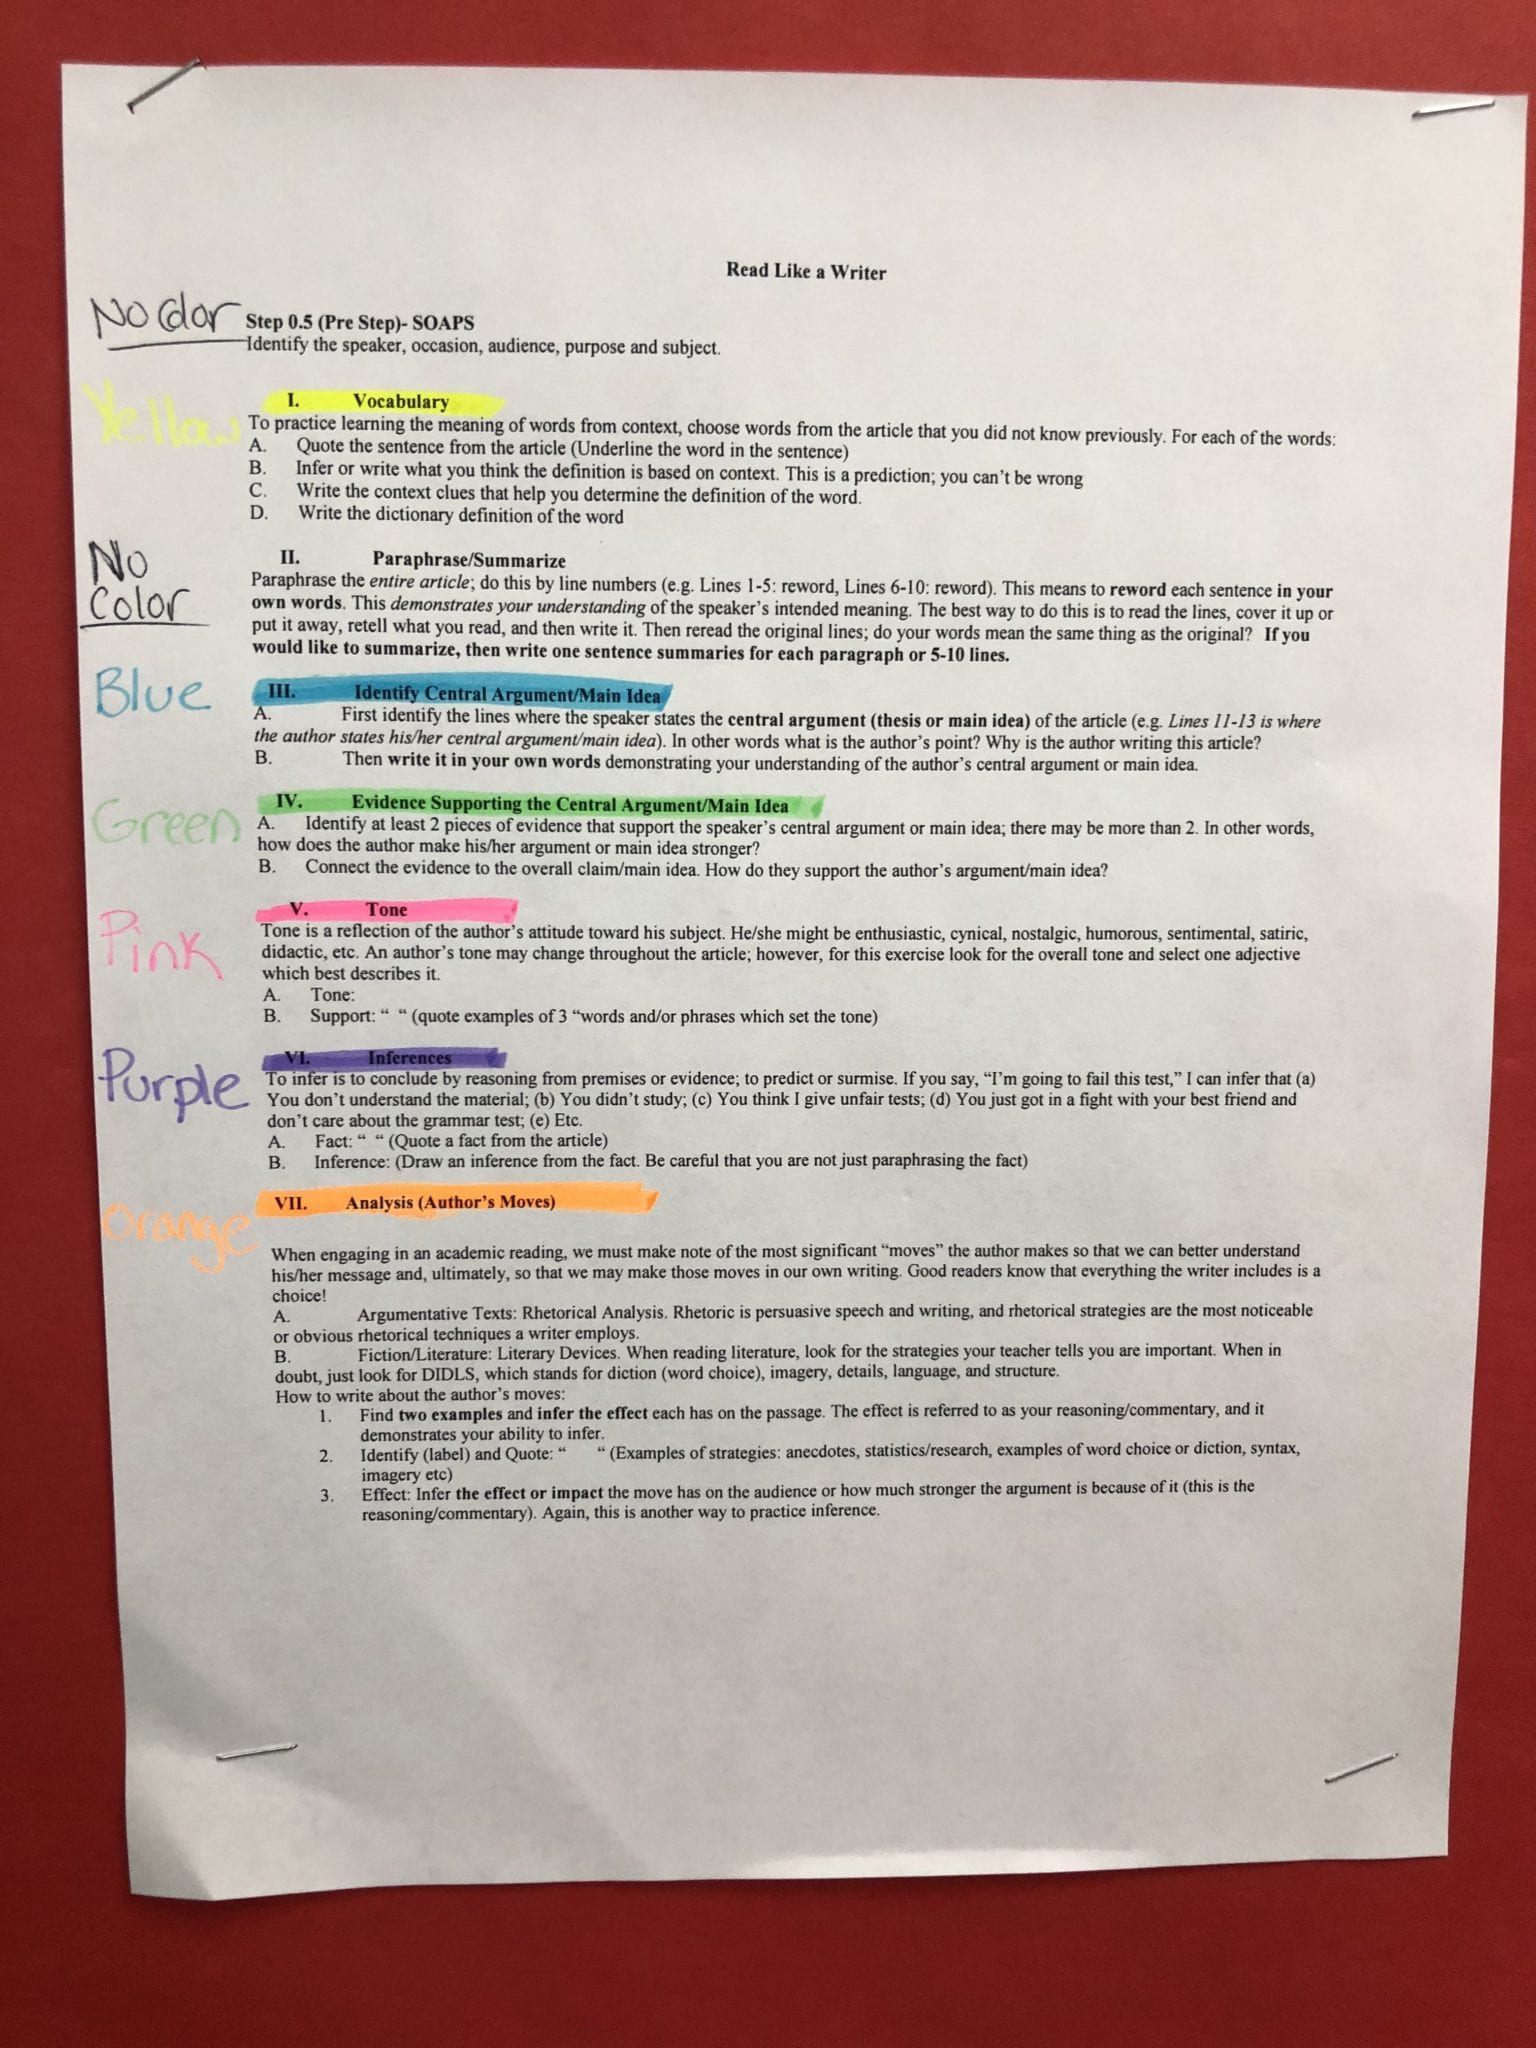 Read Like a Writer
No Color
Step 0.5 (Pre Step)- SOAPS
Identify the speaker, occasion, audience, purpose and subject.
Yellow
I. Vocabulary
To practice learning the meaning of words from context, choose words from the article that you did not know previously. For each of the words:
A. Quote the sentence from the article (Underline the word in the sentence)
B. Infer or write what you think the definition is based on context. This is a prediction; you can't be wrong
C. Write the context clues that help you determine the definition of the word.
D. Write the dictionary definition of the word
No
Color
II. Paraphrase/Summarize
Paraphrase the entire article; do this by line numbers (e.g. Lines 1-5: reword, Lines 6-10: reword). This means to reword each sentence in your
own words. This demonstrates your understanding of the speaker's intended meaning. The best way to do this is to read the lines, cover it up or
put it away, retell what you read, and then write it. Then reread the original lines; do your words mean the same thing as the original? If you
would like to summarize, then write one sentence summaries for each paragraph or 5-10 lines.
Blue
III. Identify Central Argument/Main Idea
A. First identify the lines where the speaker states the central argument (thesis or main idea) of the article (e.g. Lines 11-13 is where
the author states his/her central argument/main idea). In other words what is the author's point? Why is the author writing this article?
B. Then write it in your own words demonstrating your understanding of the author's central argument or main idea.
Green
IV. Evidence Supporting the Central Argument/Main Idea
A. Identify at least 2 pieces of evidence that support the speaker's central argument or main idea; there may be more than 2. In other words,
how does the author make his/her argument or main idea stronger?
B. Connect the evidence to the overall claim/main idea. How do they support the author's argument/main idea?
Pink
V. Tone
Tone is a reflection of the author's attitude toward his subject. He/she might be enthusiastic, cynical, nostalgic, humorous, sentimental, satiric,
didactic, etc. An author's tone may change throughout the article; however, for this exercise look for the overall tone and select one adjective
which best describes it.
A. Tone:
B. Support: “ “ (quote examples of 3 “words and/or phrases which set the tone)
Purple
VI. Inferences
To infer is to conclude by reasoning from premises or evidence; to predict or surmise. If you say, “I'm going to fail this test,” I can infer that (a)
You don't understand the material; (b) You didn't study; (c) You think I give unfair tests; (d) You just got in a fight with your best friend and
don't care about the grammar test; (e) Etc.
A. Fact: “ “ (Quote a fact from the article)
B. Inference: (Draw an inference from the fact. Be careful that you are not just paraphrasing the fact)
Orange
VII. Analysis (Author's Moves)
When engaging in an academic reading, we must make note of the most significant “moves” the author makes so that we can better understand
his/her message and, ultimately, so that we may make those moves in our own writing. Good readers know that everything the writer includes is a
choice!
A. Argumentative Texts: Rhetorical Analysis. Rhetoric is persuasive speech and writing, and rhetorical strategies are the most noticeable
or obvious rhetorical techniques a writer employs.
B. Fiction/Literature: Literary Devices. When reading literature, look for the strategies your teacher tells you are important. When in
doubt, just look for DIDLS, which stands for diction (word choice), imagery, details, language, and structure.
How to write about the author's moves:
1. Find two examples and infer the effect each has on the passage. The effect is referred to as your reasoning/commentary, and it
demonstrates your ability to infer.
2. Identify (label) and Quote: “ “ (Examples of strategies: anecdotes, statistics/research, examples of word choice or diction, syntax,
imagery etc)
3. Effect: Infer the effect or impact the move has on the audience or how much stronger the argument is because of it (this is the
reasoning/commentary). Again, this is another way to practice inference.